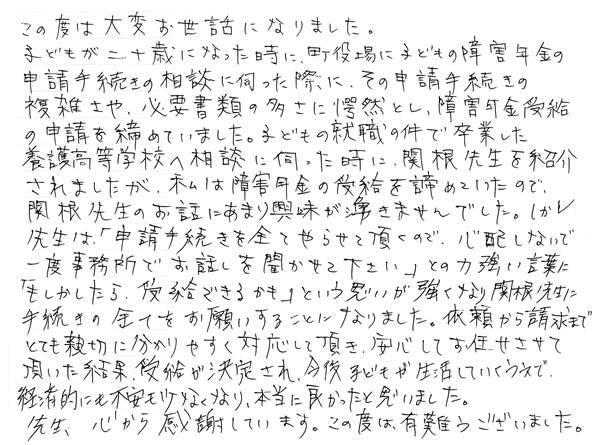 この度は大変お世話になりました。
子どもが二十歳になった時に、町役場に子どもの障害年金の
申請手続きの相談に伺った際に、その申請手続きの
複雑さや、必要書類の多さに愕然とし、障害年金受給
の申請を締めていました。子どもの就職の件で卒業した
養護高等学校へ相談に伺った時に、関根先生を紹介
されましたが、私は障害年金の受給を諦めていたので、
関根先生のお話にあまり興味が湧きませんでした。しかし
先生は、「申請手続きを全てやらせて頂くので、心配しないで
一度事務所でお話しを聞かせて下さい」との力強い言葉に
「もしかしたら、受給できるかも」という思いが強くなり関根先生に
手続きの全てをお願いすることになりました。依頼から請求まで
とても親切に分かりやすく対応して頂き、安心してお任せさせて
頂いた結果、受給が決定され、今後子どもが生活していくうえで、
経済的にも不安もなくなり、本当に良かったと思いました。
先生、心から感謝しています。この度は、有難うございました。